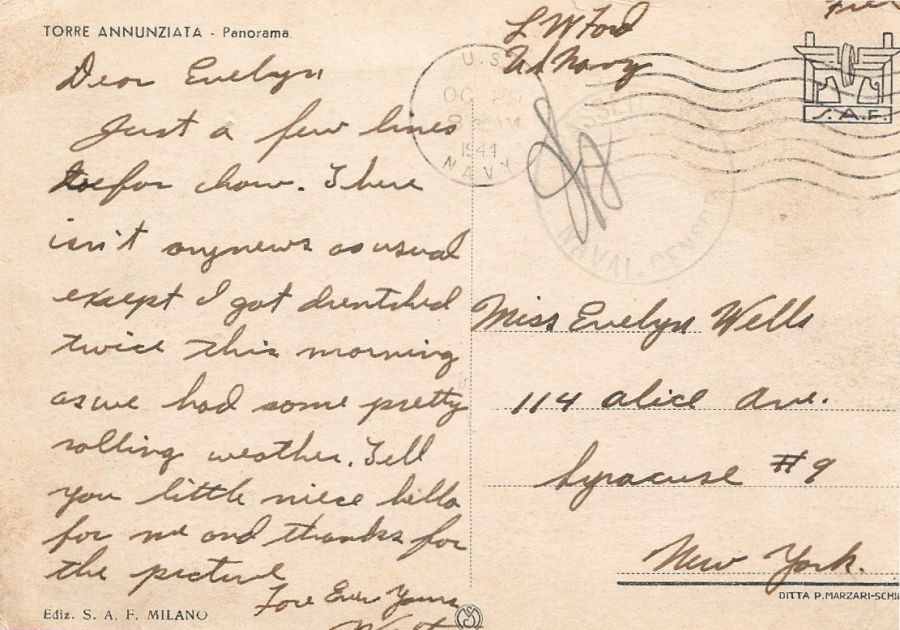 TORRE ANNUNZIATA - Panorama
Dear Evelyn
Just a few lines
before chow. There
isn't anynews as usual
except I got drentched
twice this morning
as we had some pretty
rolling weather. Tell
you little niece hello
for me and thanks for
the picture
Fore Ever Yours
Ediz. S. A. F. MILANO
L W Ford
US Navy
Free
U.S.
OCT
8 AM
1944
NAVY
PASSED BY
NAVAL CENSOR
S.A.F.
Miss Evelyn Wells
114 Alice Ave.
Syracuse #9
New York.
DITTA P. MARZARI-SCHI